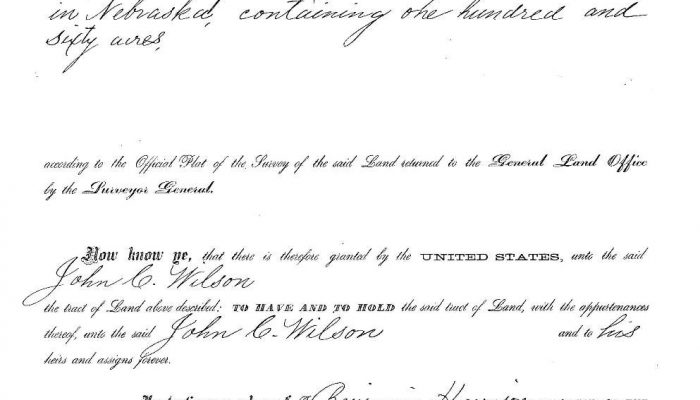 in Nebraska, containing one hundred and
sixty acres,
according to the Official Plat of the Survey of the said Land returned to the General Land Office
by the Surveyor General.
Now know ye, that there is therefore granted by the UNITED STATES, unto the said
John C. Wilson
the tract of Land above described: TO HAVE AND TO HOLD the said tract of Land, with the appurtenances
thereof, unto the said John C. Wilson and to his
heirs and assigns forever.
Benjamin Harrison